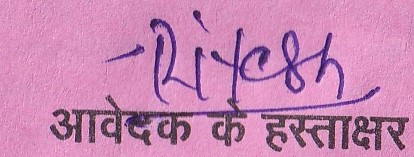 Ritesh
आवेदक के हस्ताक्षर